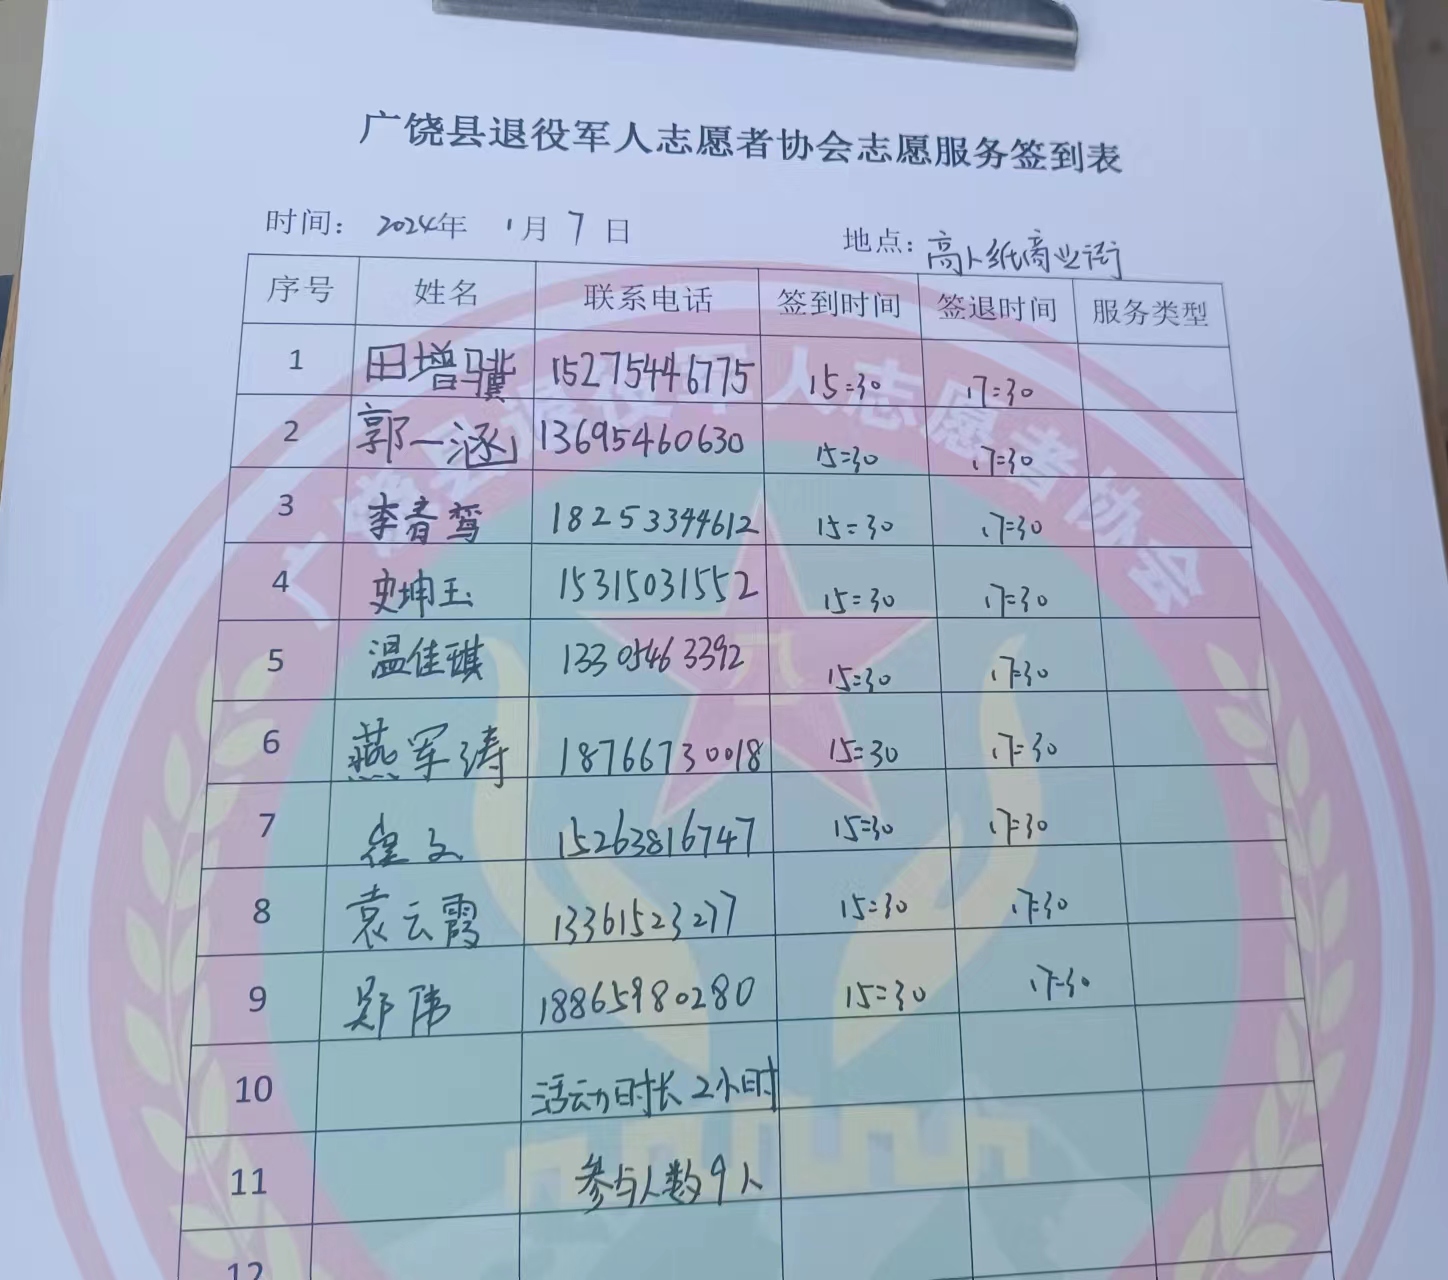 广饶县退役军人志愿者协会志愿服务签到表
时间: 2024年 1月 7日 地点:高卜纸商业街
序号 姓名 联系电话 签到时间 签退时间 服务类型
1 田增骥 15275446775 15:30 17:30
2 郭一涵 13695460630 15:30 17:30
3 李春鸾 18253344612 15:30 17:30
4 史坤玉 15315031552 15:30 17:30
5 温佳琪 13305463392 15:30 17:30
6 燕军涛 18766730018 15:30 17:30
7 文 15263816747 15:30 17:30
8 袁云霞 13361523277 15:30 17:30
9 郑伟 18865980280 15:30 17:30
10 活动时长2小时
11 参与人数9人
12
广饶县退役军人志愿者协会
八一